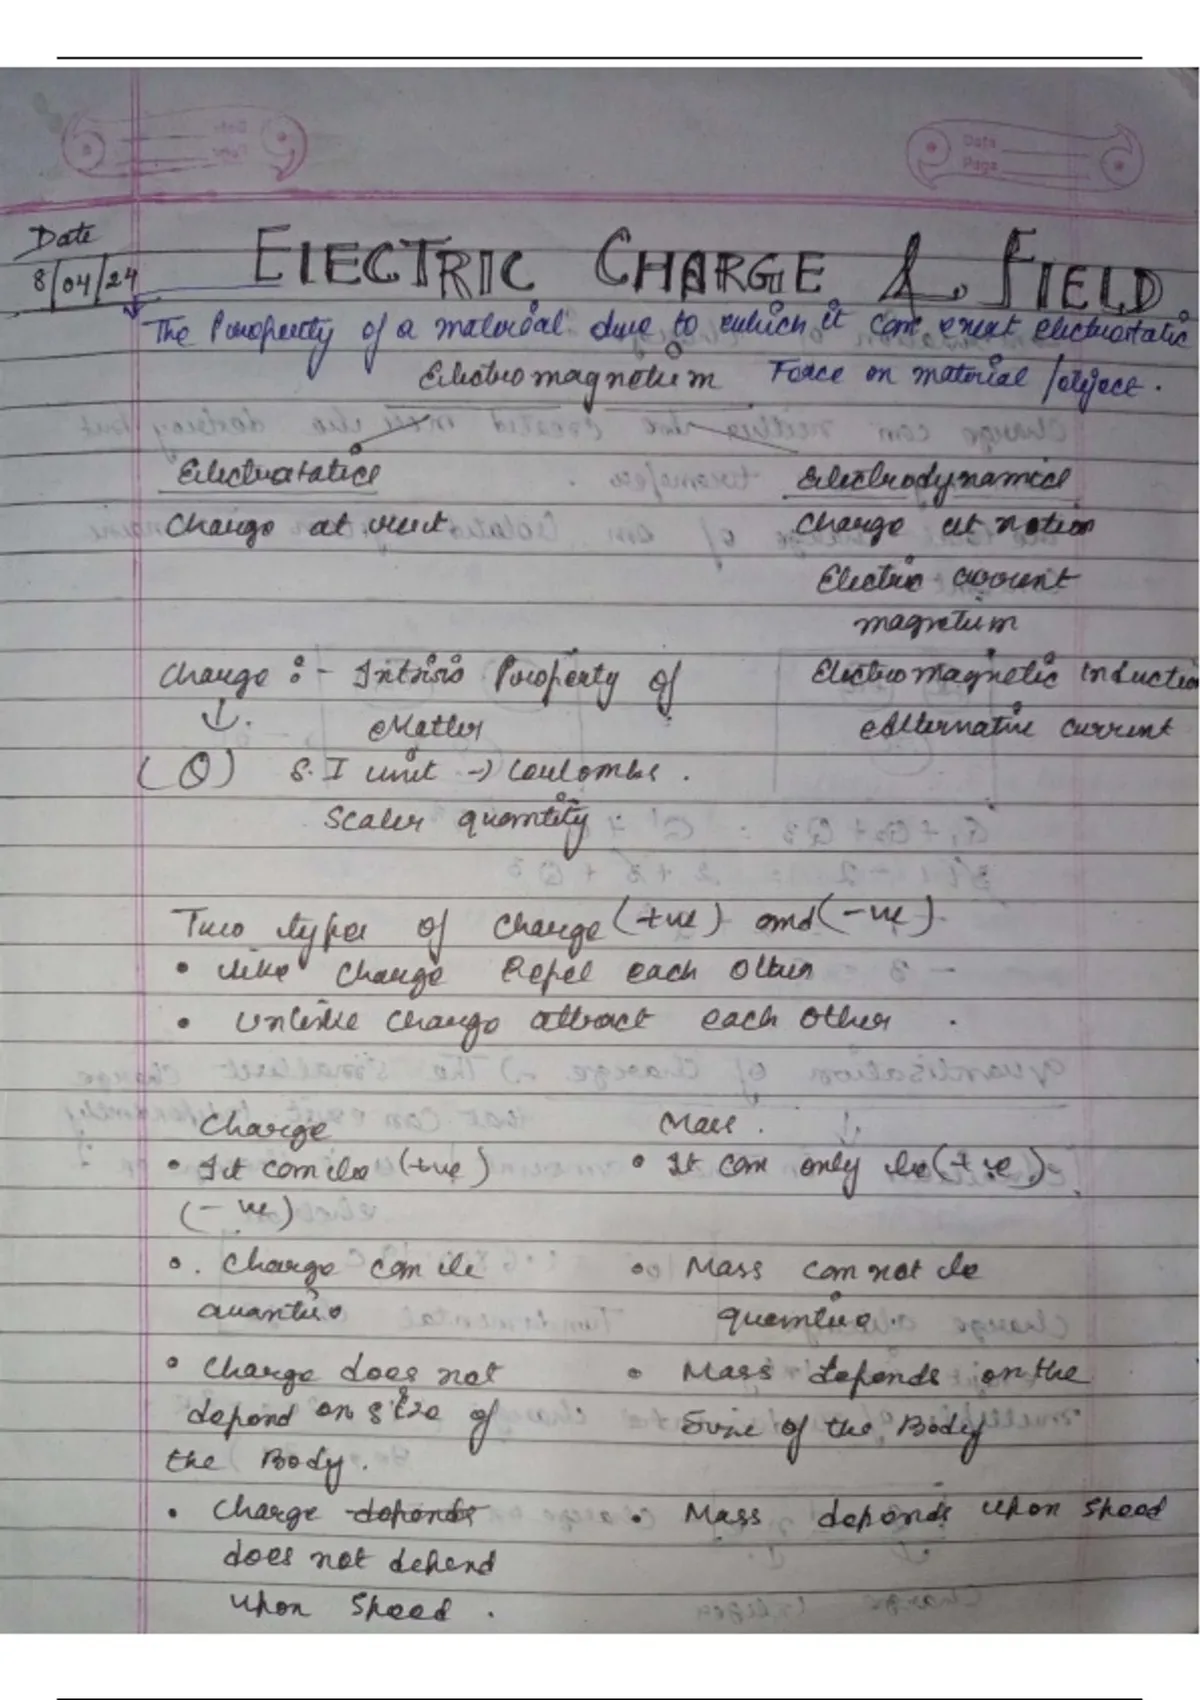 Date
8/04/24
ELECTRIC CHARGE & FIELD
The Property of a material due to which it can exert electrostatic
Electromagnetism Force on material/object.
Electrostatics Electrodynamics
Charge at rest Charge at motion
Electric current
magnetism
Charge :- Intrisis Property of Electromagnetic Induction
Matter Alternative current
(Q) S.I unit → Coulombs.
Scaler quantity
Two types of charge (+ve) and (-ve)
• like charge Repel each other
• unlike charge attract each other.
Charge Mass.
• It can be (+ve) • It can only be (+ve)
(-ve)
• Charge can be • Mass can not be
quantise quantise.
• Charge does not • Mass depends on the
depend on size of Size of the Body
the Body.
• Charge depends • Mass depends upon speed
does not depend
upon speed.
Date
Page